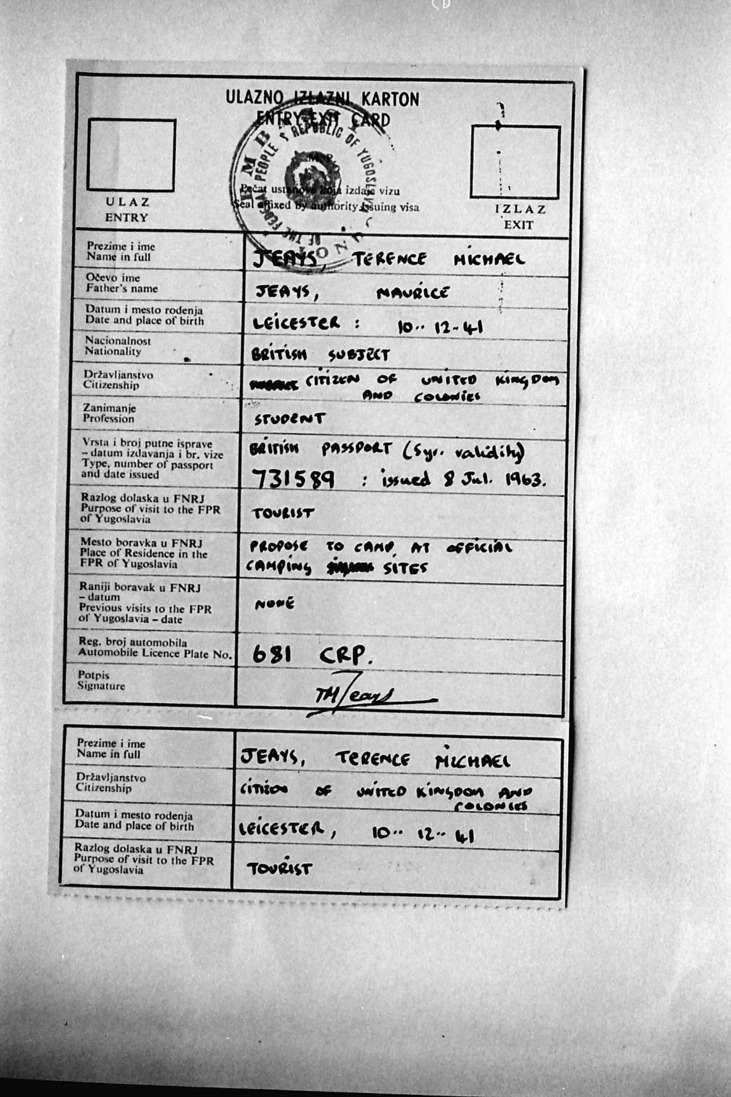 ULAZNO IZLAZNI KARTON
ENTRY-EXIT CARD
EMBASSY
OF THE FEDERAL PEOPLE'S REPUBLIC OF YUGOSLAVIA
LONDON
Pečat ustanove koja izdaje vizu
Seal affixed by authority issuing visa
ULAZ
ENTRY
IZLAZ
EXIT
Prezime i ime
Name in full
JEAYS, TERENCE MICHAEL
Očevo ime
Father's name
JEAYS, MAURICE
Datum i mesto rođenja
Date and place of birth
LEICESTER : 10·· 12·· 41
Nacionalnost
Nationality
BRITISH SUBJECT
Državljanstvo
Citizenship
CITIZEN OF UNITED KINGDOM
AND COLONIES
Zanimanje
Profession
STUDENT
Vrsta i broj putne isprave
– datum izdavanja i br. vize
Type, number of passport
and date issued
BRITISH PASSPORT (5yr. validity)
731589 : issued 8 Jul. 1963.
Razlog dolaska u FNRJ
Purpose of visit to the FPR
of Yugoslavia
TOURIST
Mesto boravka u FNRJ
Place of Residence in the
FPR of Yugoslavia
PROPOSE TO CAMP AT OFFICIAL
CAMPING SITES
Raniji boravak u FNRJ
– datum
Previous visits to the FPR
of Yugoslavia – date
NONE
Reg. broj automobila
Automobile Licence Plate No.
681 CRP.
Potpis
Signature
TMJeays
Prezime i ime
Name in full
JEAYS, TERENCE MICHAEL
Državljanstvo
Citizenship
CITIZEN OF UNITED KINGDOM AND
COLONIES
Datum i mesto rođenja
Date and place of birth
LEICESTER, 10·· 12·· 41
Razlog dolaska u FNRJ
Purpose of visit to the FPR
of Yugoslavia
TOURIST